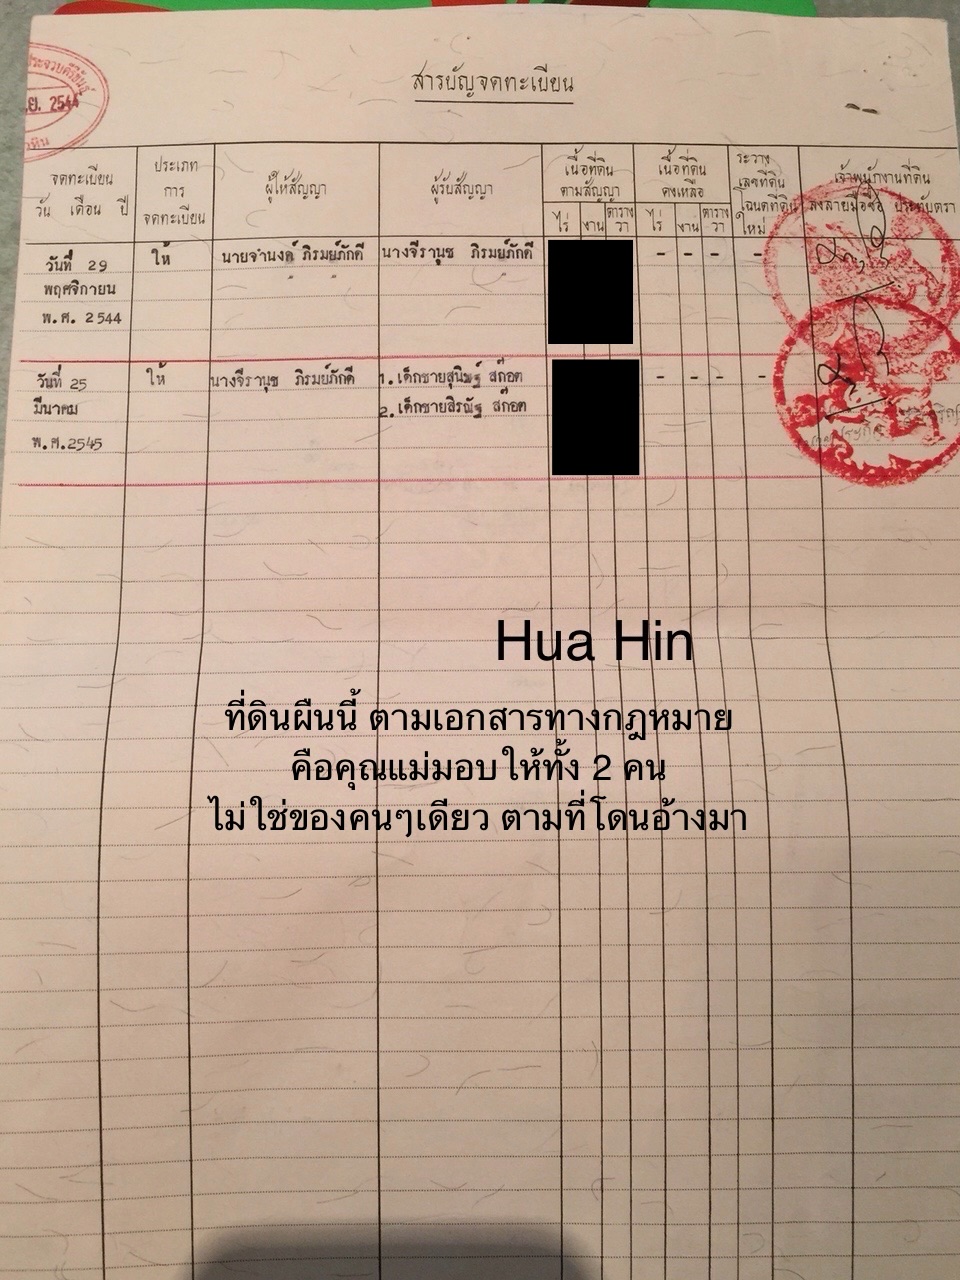 ประจวบคีรีขันธ์
ย. 2544
สารบัญจดทะเบียน
จดทะเบียน
วัน เดือน ปี
ประเภท
การ
จดทะเบียน
ผู้ให้สัญญา
ผู้รับสัญญา
เนื้อที่ดิน
ตามสัญญา
ไร่ งาน ตาราง
วา
เนื้อที่ดิน
คงเหลือ
ไร่ งาน ตาราง
วา
ระวาง
เลขที่ดิน
โฉนดที่ดิน
ใหม่
เจ้าพนักงานที่ดิน
ลงลายมือชื่อ ประทับตรา
วันที่ 29
พฤศจิกายน
พ.ศ. 2544
ให้
นายจำนงค์ ภิรมย์ภักดี
นางจีรานุช ภิรมย์ภักดี
- - - -
วันที่ 25
มีนาคม
พ.ศ.2545
ให้
นางจีรานุช ภิรมย์ภักดี
1. เด็กชายสุนิษฐ์ สก๊อต
2. เด็กชายสิรณัฐ สก๊อต
- - - -
Hua Hin
ที่ดินผืนนี้ ตามเอกสารทางกฎหมาย
คือคุณแม่มอบให้ทั้ง 2 คน
ไม่ใช่ของคนๆเดียว ตามที่โดนอ้างมา